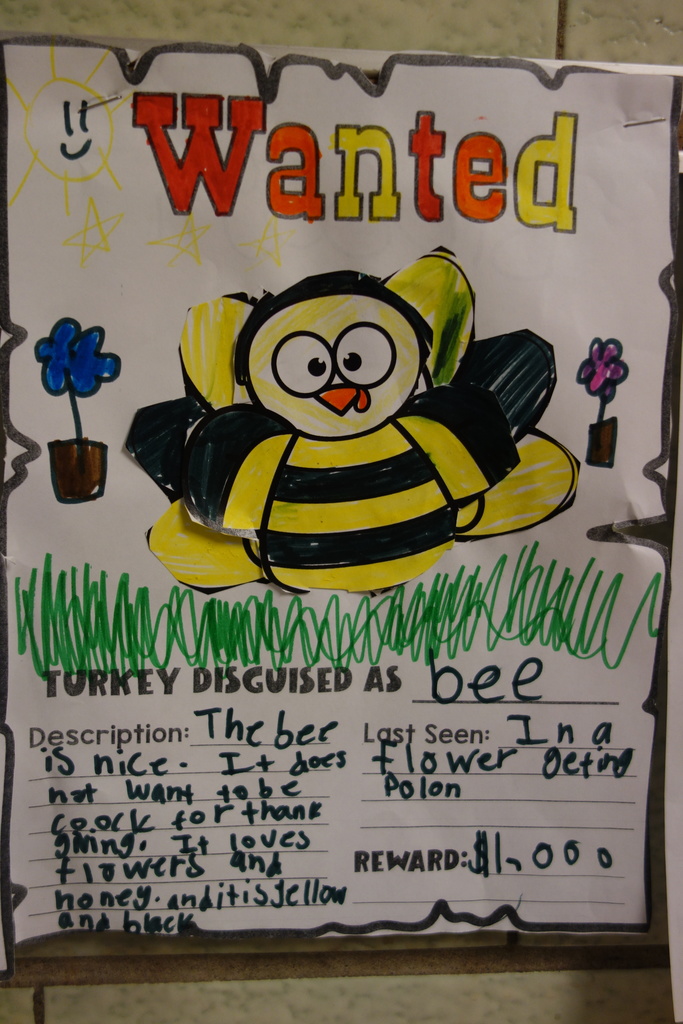 Wanted
TURKEY DISGUISED AS bee
Description: The bee
is nice. It does
not want to be
coock for thank
giving. It loves
flowers and
honey. and it is yellow
and black
Last Seen: In a
flower geting
Polon
REWARD: $1,000